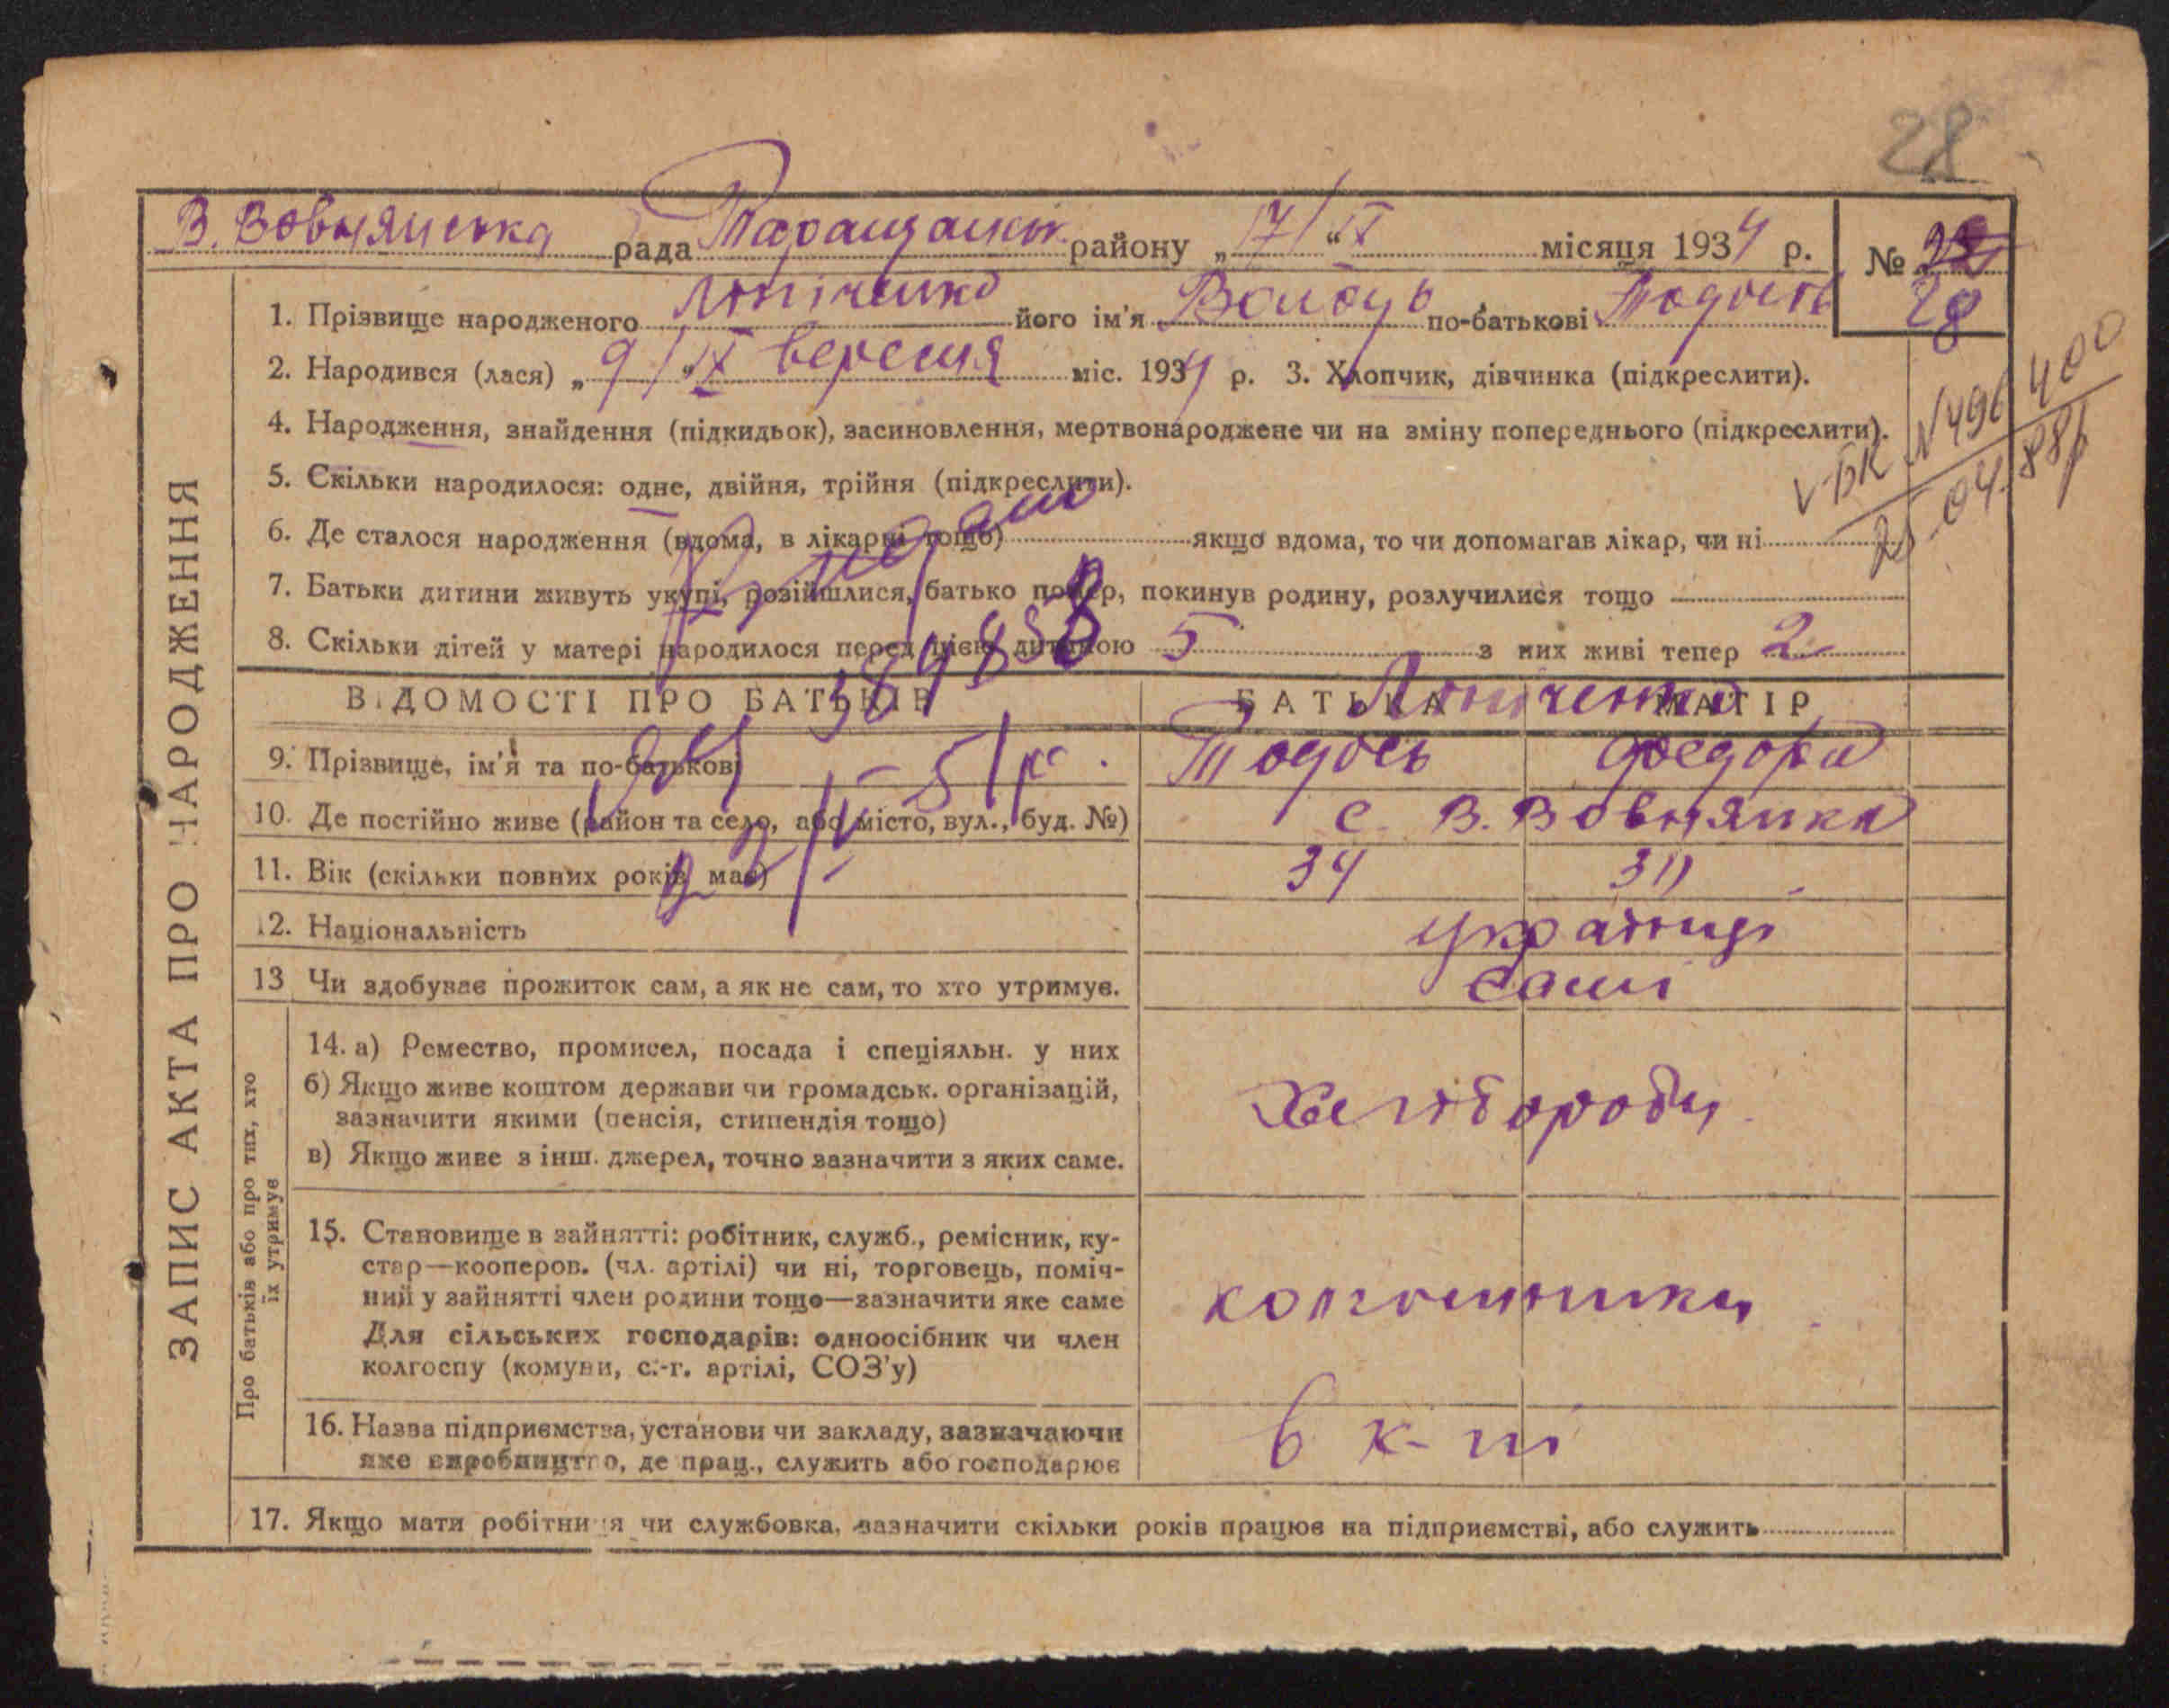 28
В. Вовнянська рада Таращанськ. району „17/“ IX місяця 1934 р. № 28
1. Прізвище народженого його ім'я по-батькові Тодось
2. Народився (лася) „9/“ IX вересня міс. 1934 р. 3. Хлопчик, дівчинка (підкреслити).
4. Народження, знайдення (підкидьок), засиновлення, мертвонароджене чи на зміну попереднього (підкреслити).
5. Скільки народилося: одне, двійня, трійня (підкреслити).
6. Де сталося народження (вдома, в лікарні тощо) якщо вдома, то чи допомагав лікар, чи ні
7. Батьки дитини живуть укупі, розійшлися, батько помер, покинув родину, розлучилися тощо
8. Скільки дітей у матері народилося перед цією дитиною 5 з них живі тепер 2
V-БК №496400
25.04.88р
ЗАПИС АКТА ПРО НАРОДЖЕННЯ
ВІДОМОСТІ ПРО БАТЬКІВ БАТЬКА МАТІР
9. Прізвище, ім'я та по-батькові Тодось Федора
10. Де постійно живе (район та село, або місто, вул., буд. №) с. В. Вовнянка
11. Вік (скільки повних років має) 34
12. Національність українці
13 Чи здобуває прожиток сам, а як не сам, то хто утримує. самі
Про батьків або про тих, хто
їх утримує
14. а) Ремество, промисел, посада і спеціяльн. у них
б) Якщо живе коштом держави чи громадськ. організацій,
зазначити якими (пенсія, стипендія тощо)
в) Якщо живе з інш. джерел, точно зазначити з яких саме.
Хлібороби
15. Становище в зайнятті: робітник, служб., ремісник, ку-
стар—кооперов. (чл. артілі) чи ні, торговець, поміч-
ний у зайнятті член родини тощо—зазначити яке саме
Для сільських господарів: одноосібник чи член
колгоспу (комуни, с.-г. артілі, СОЗ'у)
колгоспники
16. Назва підприємства, установи чи закладу, зазначаючи
яке виробництво, де прац., служить або господарює
в к-пі
17. Якщо мати робітниця чи службовка, зазначити скільки років працює на підприємстві, або служить